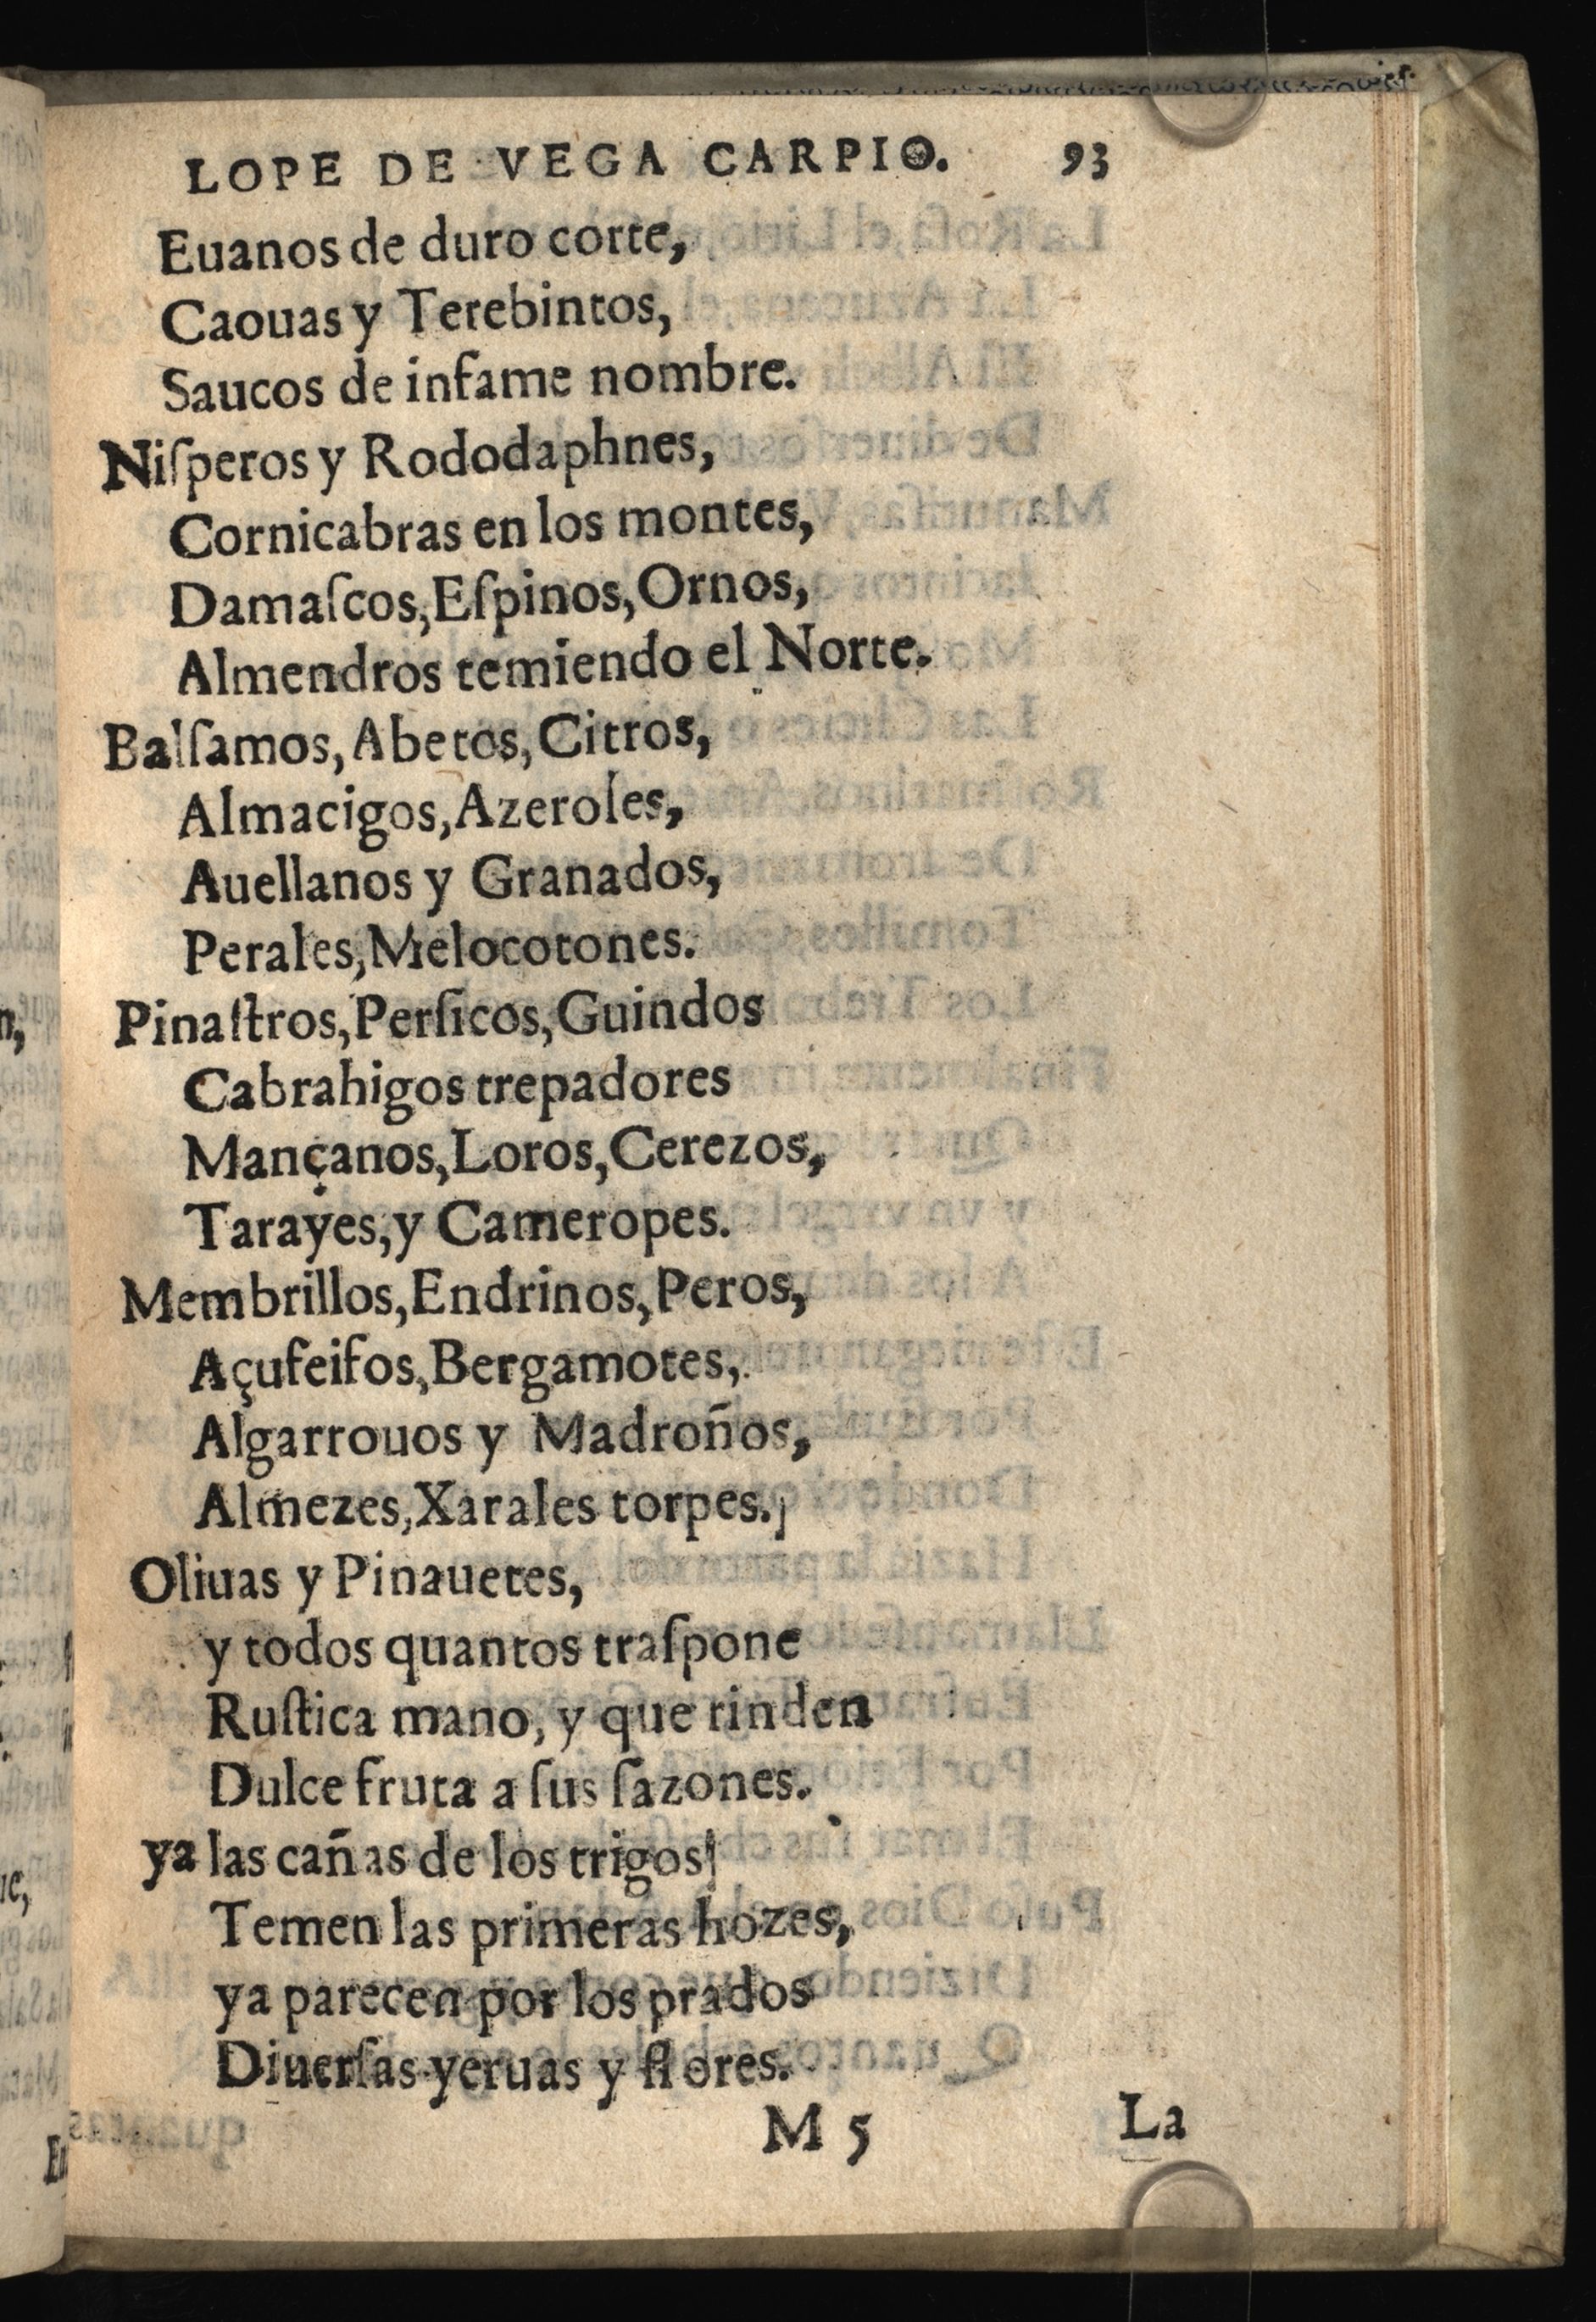 LOPE DE VEGA CARPIO. 93
Euanos de duro corte,
Caouas y Terebintos,
Saucos de infame nombre.
Niſperos y Rododaphnes,
Cornicabras en los montes,
Damaſcos, Eſpinos, Ornos,
Almendros temiendo el Norte.
Balſamos, Abetos, Citros,
Almacigos, Azeroles,
Auellanos y Granados,
Perales, Melocotones.
Pinaſtros, Perſicos, Guindos
Cabrahigos trepadores
Mançanos, Loros, Cerezos,
Tarayes, y Cameropes.
Membrillos, Endrinos, Peros,
Açufeifos, Bergamotes,
Algarrouos y Madroños,
Almezes, Xarales torpes.
Oliuas y Pinauetes,
y todos quantos traſpone
Ruſtica mano, y que rinden
Dulce fruta a ſus ſazones.
ya las cañas de los trigos
Temen las primeras hozes,
ya parecen por los prados
Diuerſas yeruas y flores.
M 5 La